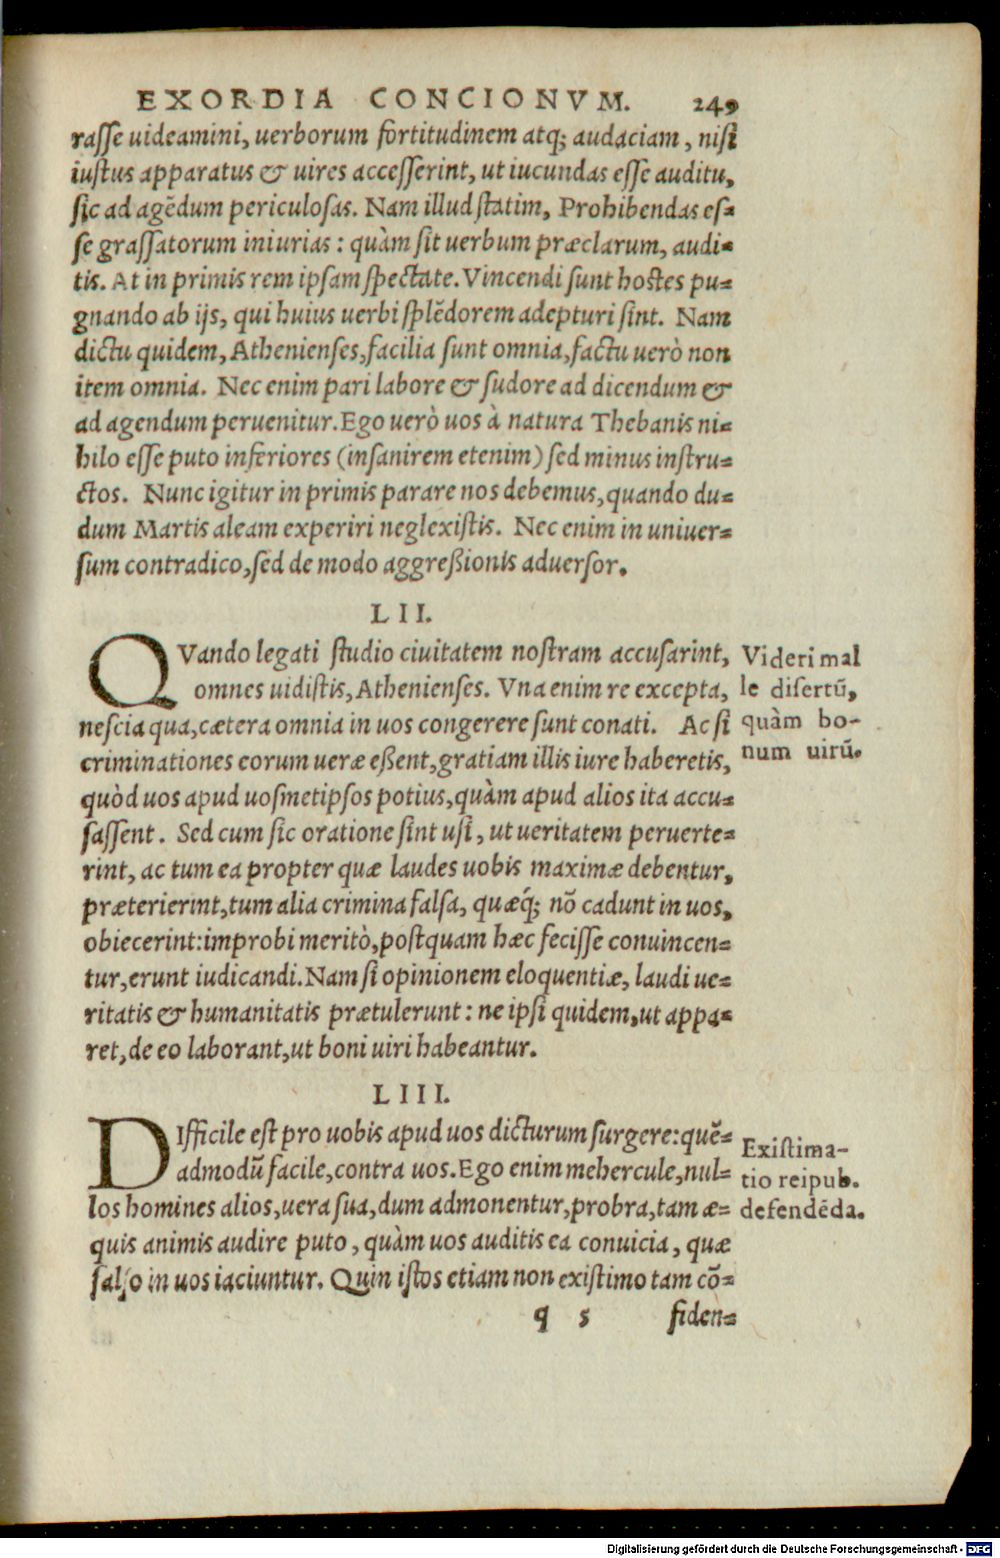 EXORDIA CONCIONVM. 249
rasse uideamini, uerborum fortitudinem atq; audaciam, nisi
iustus apparatus & uires accesserint, ut iucundas esse auditu,
sic ad agēdum periculosas. Nam illud statim, Prohibendas es-
se grassatorum iniurias: quàm sit uerbum præclarum, audi-
tis. At in primis rem ipsam spectate. Vincendi sunt hostes pu-
gnando ab ijs, qui huius uerbi splēdorem adepturi sint. Nam
dictu quidem, Athenienses, facilia sunt omnia, factu uerò non
item omnia. Nec enim pari labore & sudore ad dicendum &
ad agendum peruenitur. Ego uerò uos à natura Thebanis ni-
hilo esse puto inferiores (insanirem etenim) sed minus instru-
ctos. Nunc igitur in primis parare nos debemus, quando du-
dum Martis aleam experiri neglexistis. Nec enim in uniuer-
sum contradico, sed de modo aggreßionis aduersor.
LII.
QVando legati studio ciuitatem nostram accusarint,
omnes uidistis, Athenienses. Vna enim re excepta,
nescia qua, cætera omnia in uos congerere sunt conati. Ac si
criminationes eorum ueræ eßent, gratiam illis iure haberetis,
quòd uos apud uosmetipsos potius, quàm apud alios ita accu-
sassent. Sed cum sic oratione sint usi, ut ueritatem peruerte-
rint, ac tum ea propter quæ laudes uobis maximæ debentur,
præterierint, tum alia crimina falsa, quæq́; nō cadunt in uos,
obiecerint: improbi meritò, postquam hæc fecisse conuincen-
tur, erunt iudicandi. Nam si opinionem eloquentiæ, laudi ue-
ritatis & humanitatis prætulerunt: ne ipsi quidem, ut appa-
ret, de eo laborant, ut boni uiri habeantur.
Videri mal
le disertū,
quàm bo-
num uirū.
LIII.
DIfficile est pro uobis apud uos dicturum surgere: quē-
admodū facile, contra uos. Ego enim mehercule, nul-
los homines alios, uera sua, dum admonentur, probra, tam æ-
quis animis audire puto, quàm uos auditis ea conuicia, quæ
falso in uos iaciuntur. Quin istos etiam non existimo tam cō-
Existima-
tio reipub.
defendēda.
q 5 fiden-
Digitalisierung gefördert durch die Deutsche Forschungsgemeinschaft - DFG